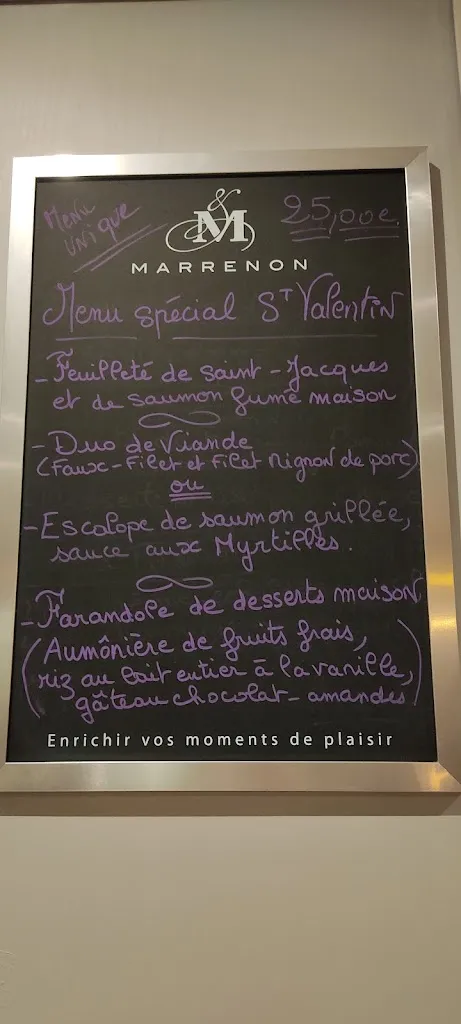 Menu
unique
25,00€
&
M
MARRENON
Menu spécial St Valentin
- Feuilleté de Saint-Jacques
et de saumon fumé maison
- Duo de Viande
(Faux-Filet et Filet Mignon de porc)
ou
- Escalope de saumon grillée,
sauce aux Myrtilles.
- Farandole de desserts maison
(Aumônière de fruits frais,
riz au lait entier à la vanille,
gâteau chocolat-amandes)
Enrichir vos moments de plaisir